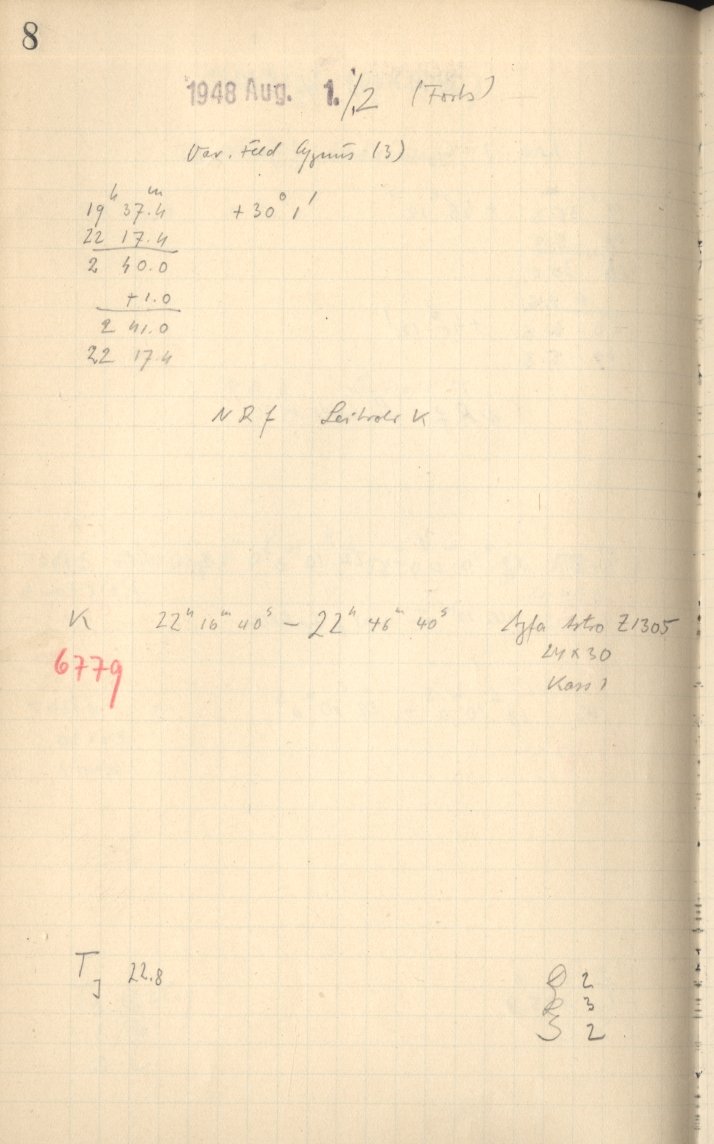 8
1948 Aug. 1./2 (Forts)
Var. Feld Cygnus (3)
19h 37.4m +30° 1'
22 17.4
2 40.0
+1.0
2 41.0
22 17.4
NRf Leitrohr K
K 22h 16m 40s – 22h 46m 40s Agfa Astro Z1305
6779 24x30
Kass 1
TJ 22.8
2
3
2